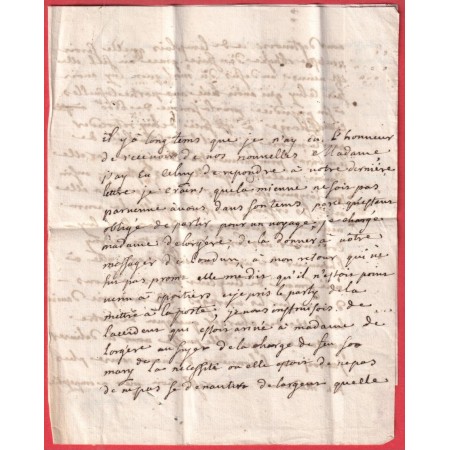 il y à longtems que je n'ay eu l'honneur
de recevoir de nos nouvelles Madame
j'ay eu celuy de repondre à vostre derniere
lettre je crains que la mienne ne soit pas
parvenue à vous dans son tems, parce qu'estant
obligé de partir pour un voyage, je chargé
madame de lorgere de la donner à vôtre
messager de Loudun, à mon retour qui ne
fut pas prompt elle me dit qu'il n'estoit point
venu à poitiers et je pris le party de la
mettre à la poste, je vous instruisois de
qui estoit arrivé à madame de
lorgere au sujet de la charge de feu son
mary de la necessité ou elle estoit de ne pas
de ne pas se demantir de largeur quelle